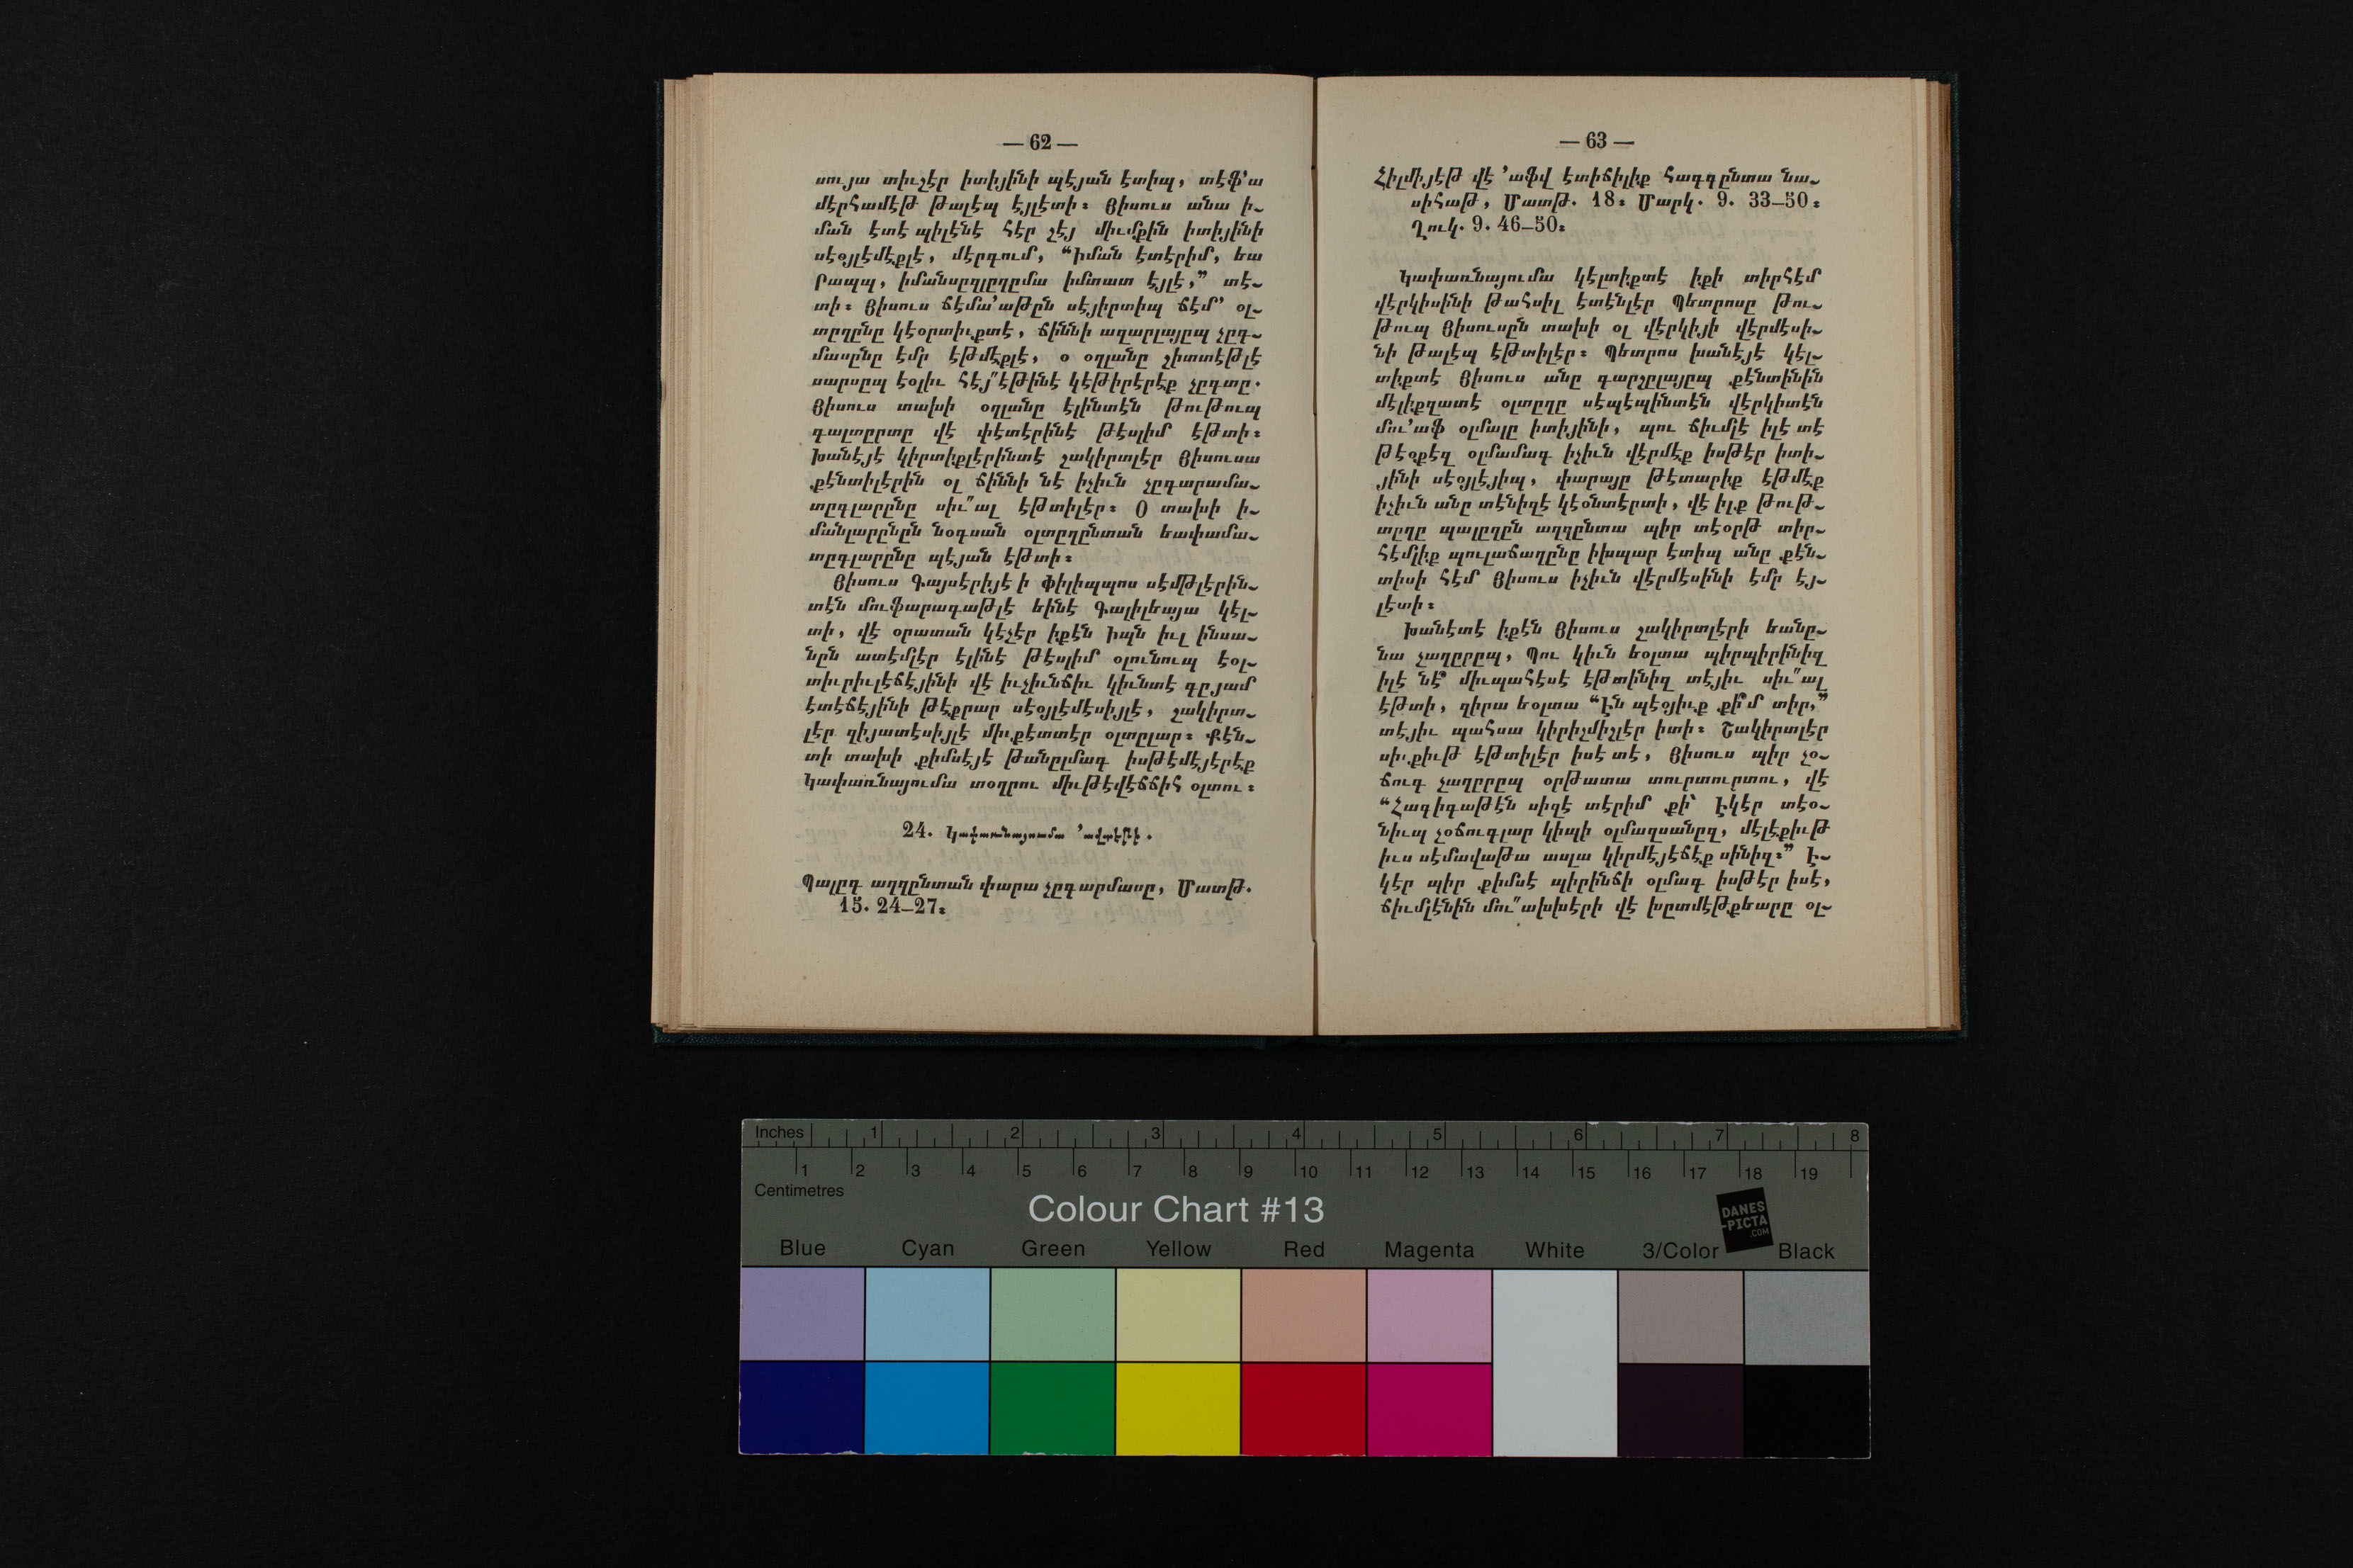 — 62 —
սույա տիւչէր իտիյինի պէյան էտիպ, տէֆ՚ա
մէրհամէթ թալէպ էյլէտի։ Յիսուս անա ի-
ման էտէ պիլէնէ հէր չէյ միւմքին իտիյինի
սէօյլէմէքլէ, մէրգում, “Իման էտէրիմ, եա
Րապպ, իմանսըզլըղըմա իմտատ էյլէ,” տէ-
տի։ Յիսուս ճէմա՚աթըն սէյիրտիպ ճէմ՚ օլ-
տըղընը կէօրտիւքտէ, ճիննի ազարլայըպ չըգ-
մասընը էմր էթմէքլէ, օ օղլանը շիտտէթլէ
սարսըպ էօլիւ հէյ՞էթինէ կէթիրէրէք չըգտը.
Յիսուս տախի օղլանը էլինտէն թութուպ
գալտըրտը վէ փէտէրինէ թէսլիմ էթտի։
Խանէյէ կիրտիքլէրինտէ շակիրտլէր Յիսուսա
քէնտիլէրին օլ ճիննի նէ իչիւն չըգարամա-
տըգլարընը սիւ՞ալ էթտիլէր։ Օ տախի ի-
մանլարընըն նօգսան օլտըղընտան եափամա-
տըգլարընը պէյան էթտի։
Յիսուս Գայսէրիյէ ի Փիլիպպոս սէմթլէրին-
տէն մուֆարագաթլէ եինէ Գալիլեայա կէլ-
տի, վէ օրատան կէչէր իքէն Իպն իւլ ինսա-
նըն ատէմլէր էլինէ թէսլիմ օլունուպ էօլ-
տիւրիւլէճէյինի վէ իւչիւնճիւ կիւնտէ գըյամ
էտէճէյինի թէքրար սէօյլէմէսիյլէ, շակիրտ-
լէր զիյատէսիյլէ միւքէտտէր օլտըլար։ Քէն-
տի տախի քիմսէյէ թանըլմագ իսթէմէյէրէք
Կափառնայումա տօղրու միւթէվէճճիհ օլտու։
24. Կափառնայումա ՚ավտէթի.
Պալըգ աղզընտան փարա չըգարմասը, Մատթ.
15. 24—27։
— 63 —
Հիլմիյէթ վէ ՚աֆվ էտիճիլիք հագգընտա նա-
սիհաթ, Մատթ. 18։ Մարկ. 9. 33—50։
Ղուկ. 9. 46—50։
Կափառնայումա կէլտիքտէ իքի տիրհէմ
վէրկիսինի թահսիլ էտէնլէր Պետրոսը թու-
թուպ Յիսուսըն տախի օլ վէրկիյի վէրմէսի-
նի թալէպ էթտիլէր։ Պետրոս խանէյէ կէլ-
տիքտէ Յիսուս անը գարշըլայըպ քէնտինին
մէլիքզատէ օլտըղը սէպէպինտէն վէրկիտէն
մու՚աֆ օլմալը իտիյինի, պու ճիւմլէ իլէ տէ
թէօքէզ օլմամագ իչիւն վէրմէք իսթէր իտի-
յինի սէօյլէյիպ, փարայը թէտարիք էթմէք
իչիւն անը տէնիզէ կէօնտէրտի, վէ իլք թութ-
տըղը պալըղըն աղզընտա պիր տէօրթ տիր-
հէմլիք պուլաճաղընը իխպար էտիպ անը քէն-
տիսի հէմ Յիսուս իչիւն վէրմէսինի էմր էյ-
լէտի։
Խանէտէ իքէն Յիսուս շակիրտլէրի եանը-
նա չաղըրըպ, Պու կիւն եօլտա պիրպիրինիզ
իլէ նէ՞ միւպահէսէ էթտինիզ տէյիւ սիւ՞ալ
էթտի, զիրա եօլտա “Էն պէօյիւք քի՞մ տիր,”
տէյիւ պահսա կիրիշմիշլէր իտի։ Շակիրտլէր
սիւքիւթ էթտիլէր իսէ տէ, Յիսուս պիր չօ-
ճուգ չաղըրըպ օրթատա տուրտուրտու, վէ
“Հագիգաթէն սիզէ տէրիմ քի՝ Էկէր տէօ-
նիւպ չօճուգլար կիպի օլմազսանըզ, մէլէքիւթ
իւս սէմավաթա ասլա կիրմէյէճէք սինիզ։” Է-
կէր պիր քիմսէ պիրինճի օլմագ իսթէր իսէ,
ճիւմլէնին մու՞ախխէրի վէ խըտմէթքեարը օլ-
Inches 1 2 3 4 5 6 7 8
1 2 3 4 5 6 7 8 9 10 11 12 13 14 15 16 17 18 19
Centimetres
Colour Chart #13
DANES
-PICTA
.COM
Blue Cyan Green Yellow Red Magenta White 3/Color Black